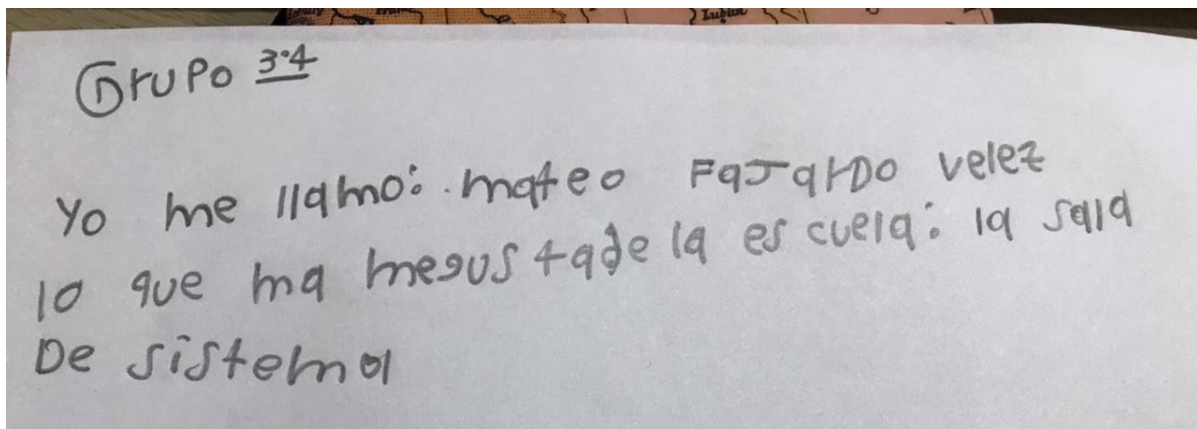 Lublin
Grupo 3°4
Yo me llamo: mateo FaJarDo velez
lo que ma megustade la es cuela: la sala
De sistema